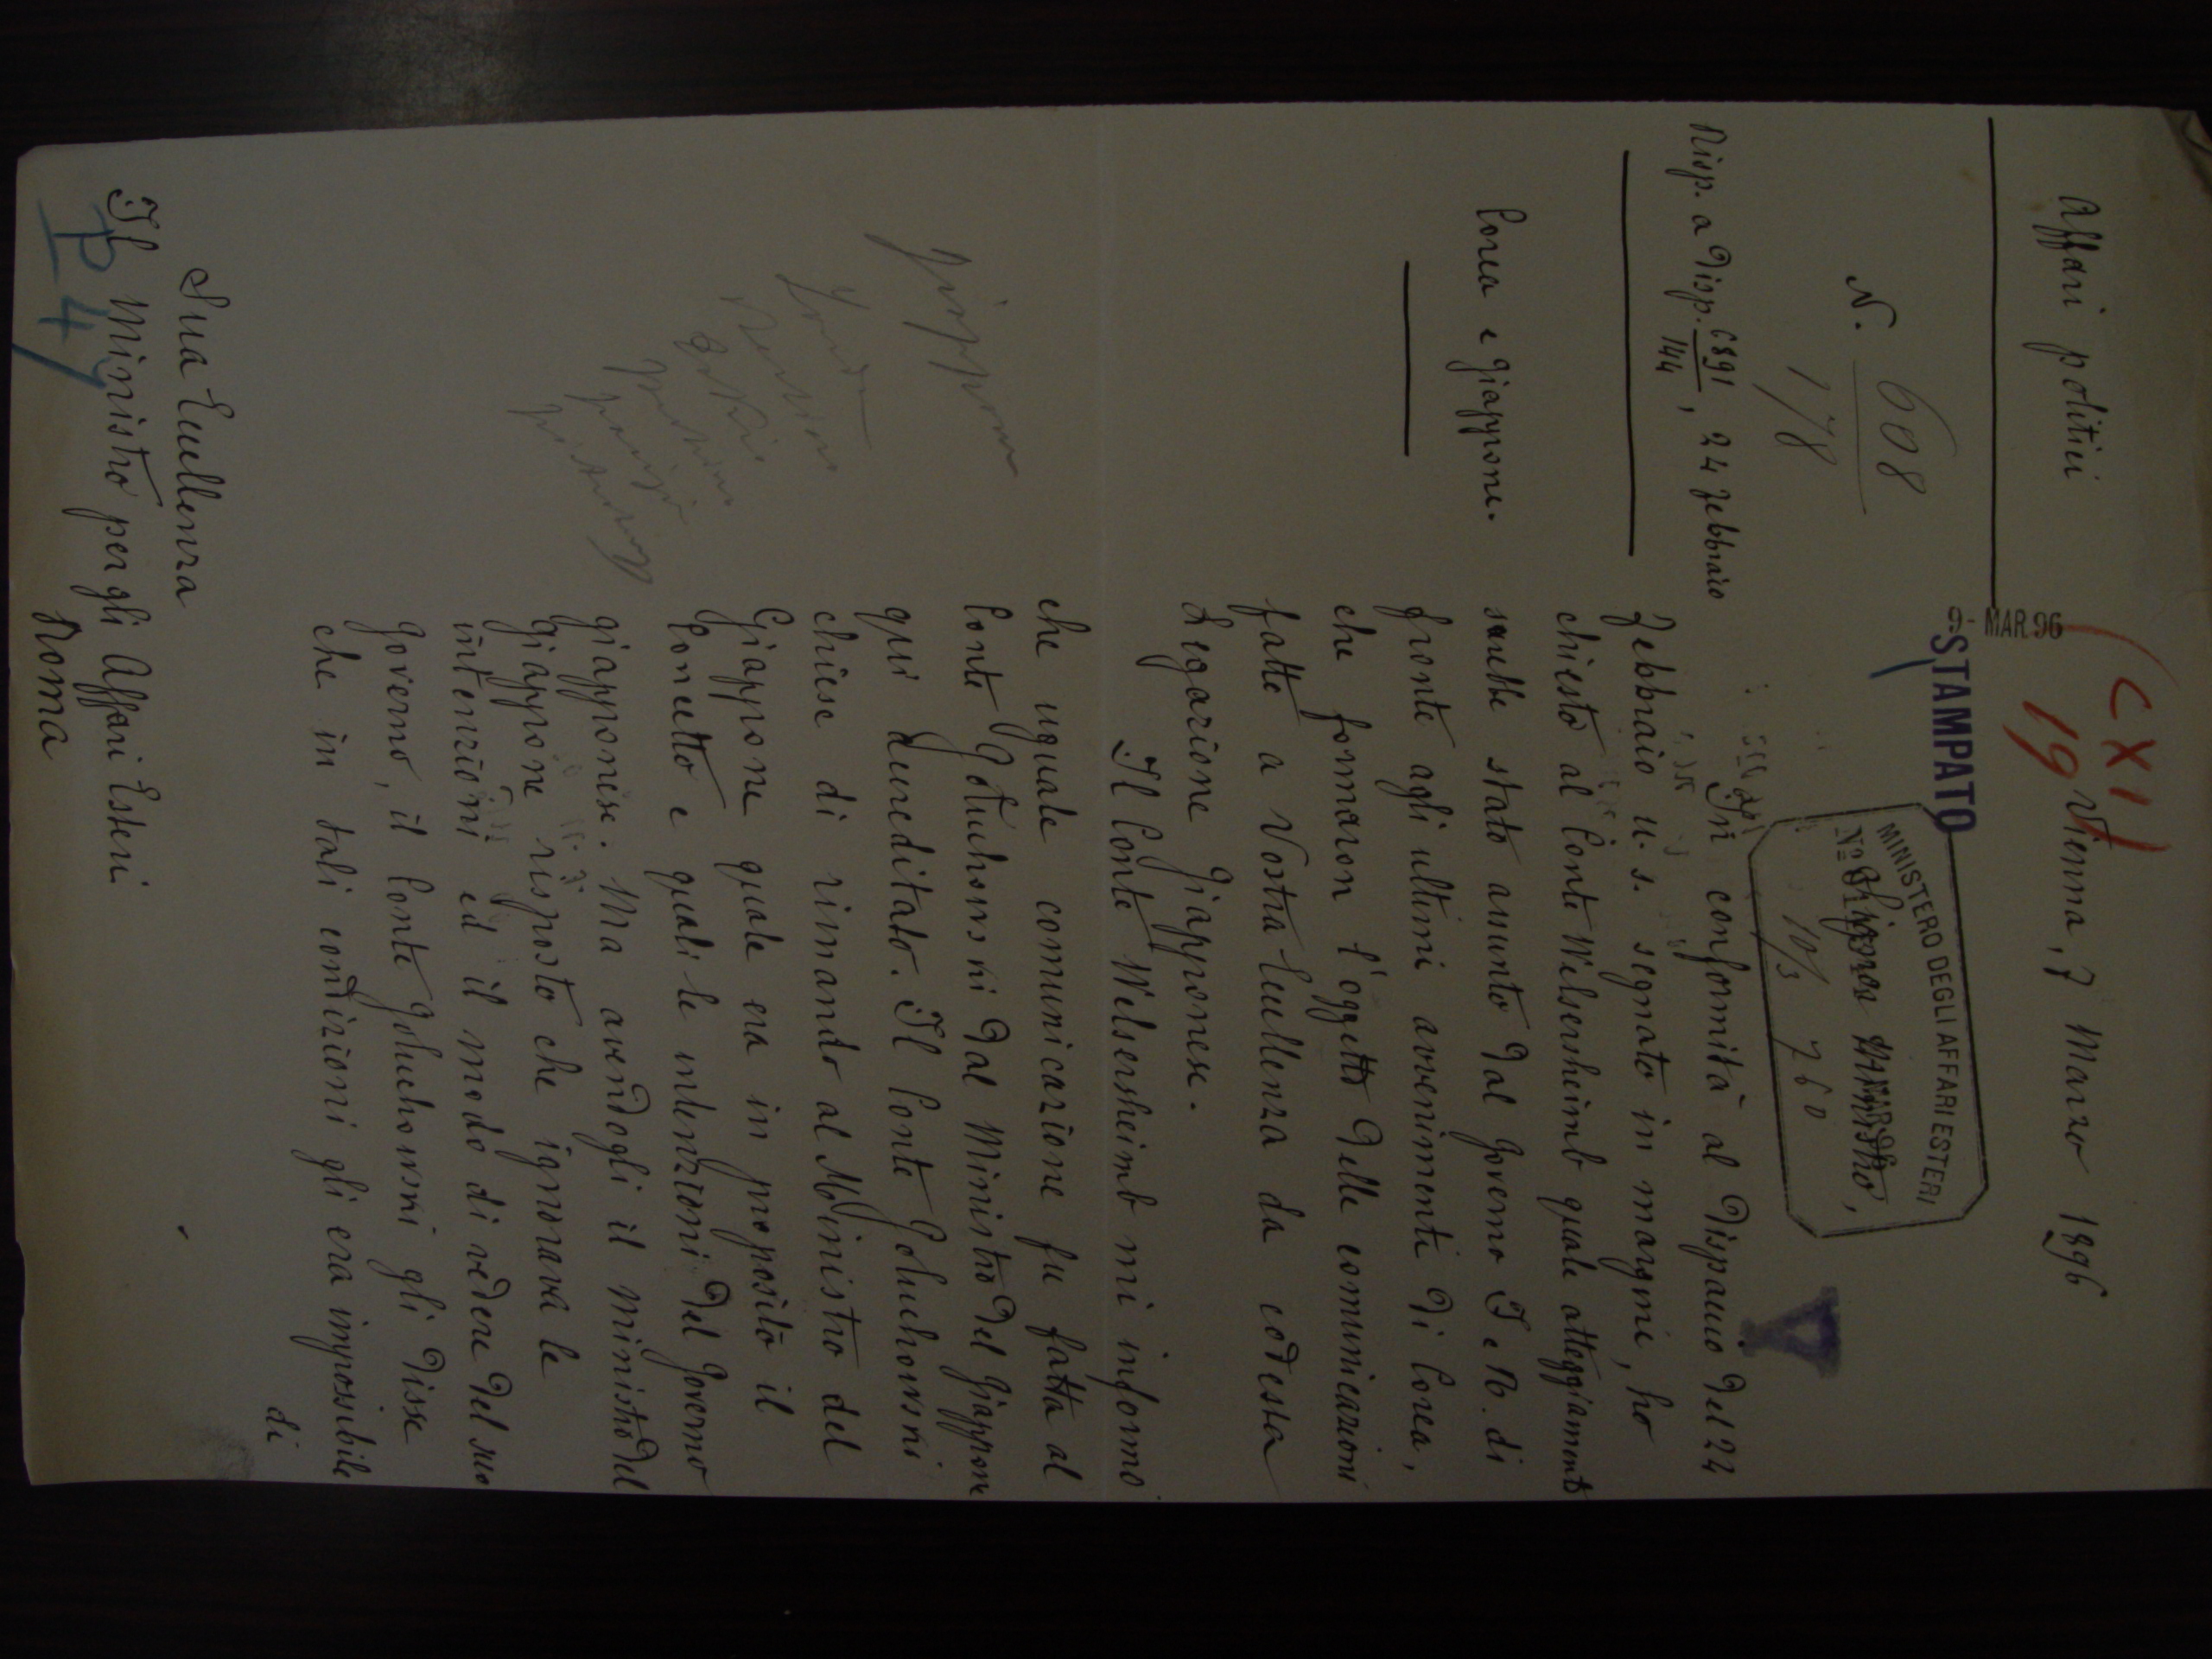 Affari politici
(CXI)
19
Vienna, 7 Marzo 1896
9- MAR. 96
STAMPATO
N. 608
178
MINISTERO DEGLI AFFARI ESTERI
No
Signor Ministro,
10/3 760
Risp. a Disp. 6891/144, 24 Febbraio
Corea e Giappone.
In conformità al Dispaccio del 24
Febbraio u. s. segnato in margine, ho
chiesto al Conte Welsersheimb quale atteggiamento
sarebbe stato assunto dal Governo I e R. di
fronte agli ultimi avvenimenti di Corea,
che formaron l'oggetto delle comunicazioni
fatte a Vostra Eccellenza da codesta
Legazione Giapponese.
Il Conte Welsersheimb mi informò
che uguale comunicazione fu fatta al
Conte Goluchowski dal Ministro del Giappone
qui accreditato. Il Conte Goluchowski
chiese di rimando al Ministro del
Giappone quale era in proposito il
Concetto e quali le intenzioni del Governo
giapponese. Ma avendogli il Ministro del
Giappone risposto che ignorava le
intenzioni ed il modo di vedere del suo
Governo, il Conte Goluchowski gli disse
che in tali condizioni gli era impossibile
di
Giappone
Londra
Berlino
Parigi
Pietroburgo
Sua Eccellenza
Il Ministro per gli Affari Esteri
Roma
P 4